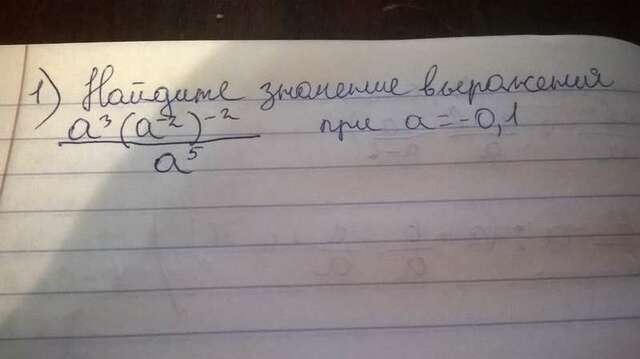 1) Найдите значение выражения
a³(a⁻²)⁻² при a=-0,1
a⁵